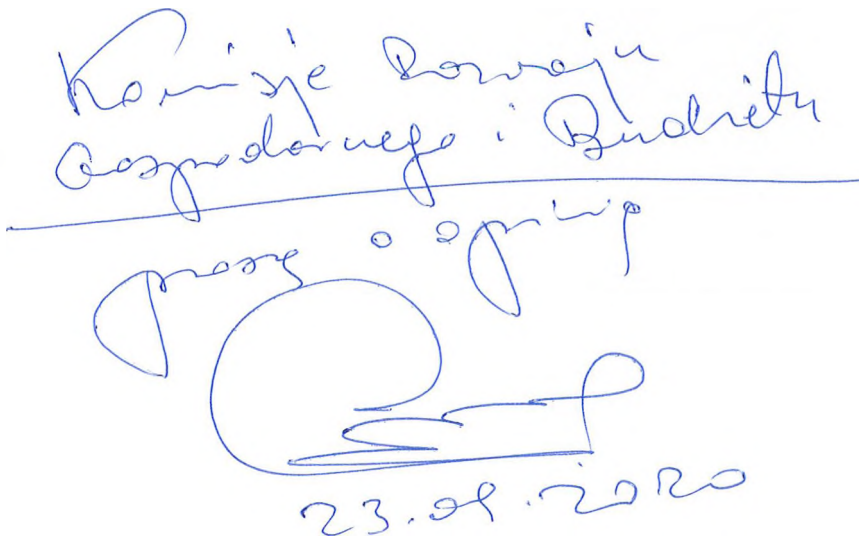 Komisję Rozwoju
Gospodarczego i Budżetu
proszę o opinię
23.09.2020